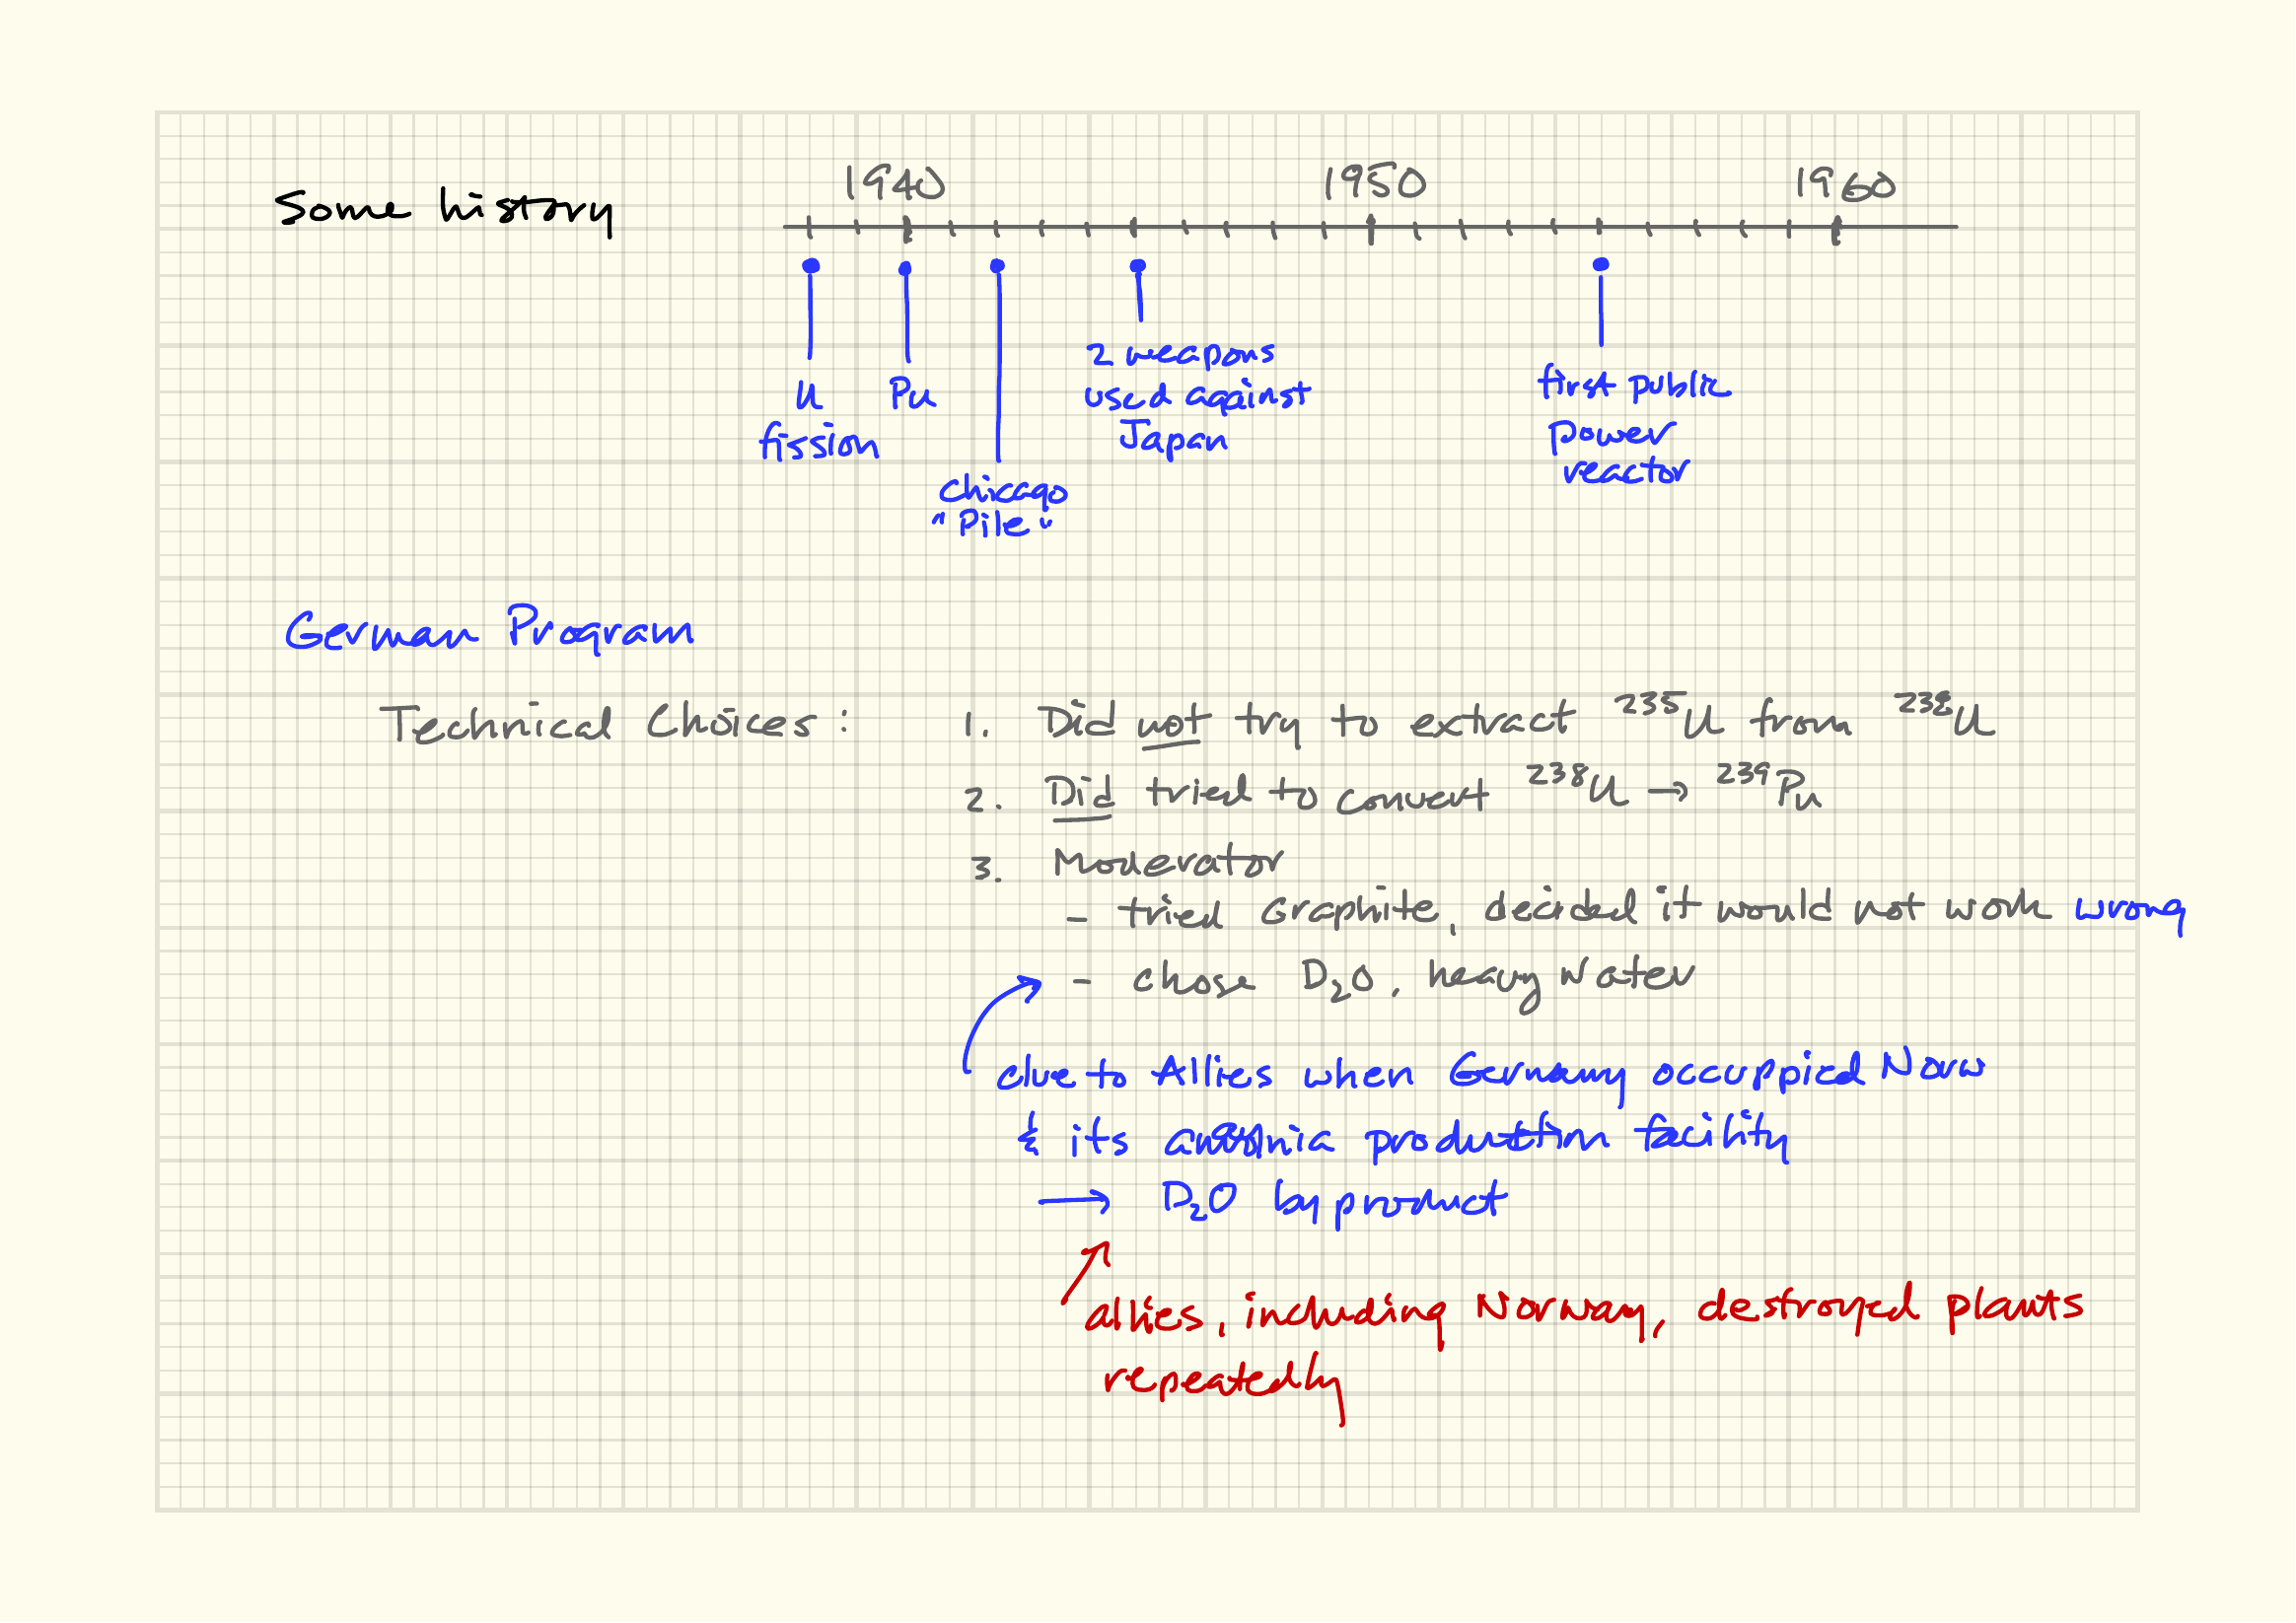 Some history
1940 1950 1960
U
fission
Pu
Chicago
"Pile"
2 weapons
used against
Japan
first public
power
reactor
German Program
Technical Choices:
1. Did not try to extract ²³⁵U from ²³⁸U
2. Did tried to convert ²³⁸U → ²³⁹Pu
3. Moderator
- tried Graphite, decided it would not work wrong
- chose D₂O, heavy water
clue to Allies when Germany occuppied Norw
& its production facility
→ D₂O byproduct
allies, including Norway, destroyed plants
repeatedly